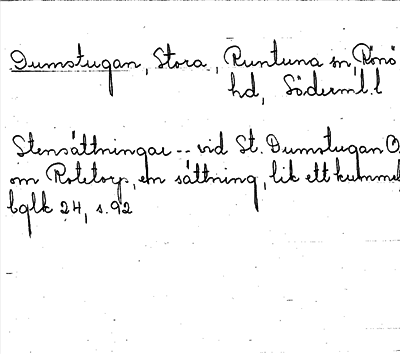 Dumstugan, Stora, Runtuna sn, Rönö
hd, Söderml. l
Stensättningar -- vid St. Dumstugan O.
om Rotetorp, en sättning, lik ett kummel
bglk 24, s. 92